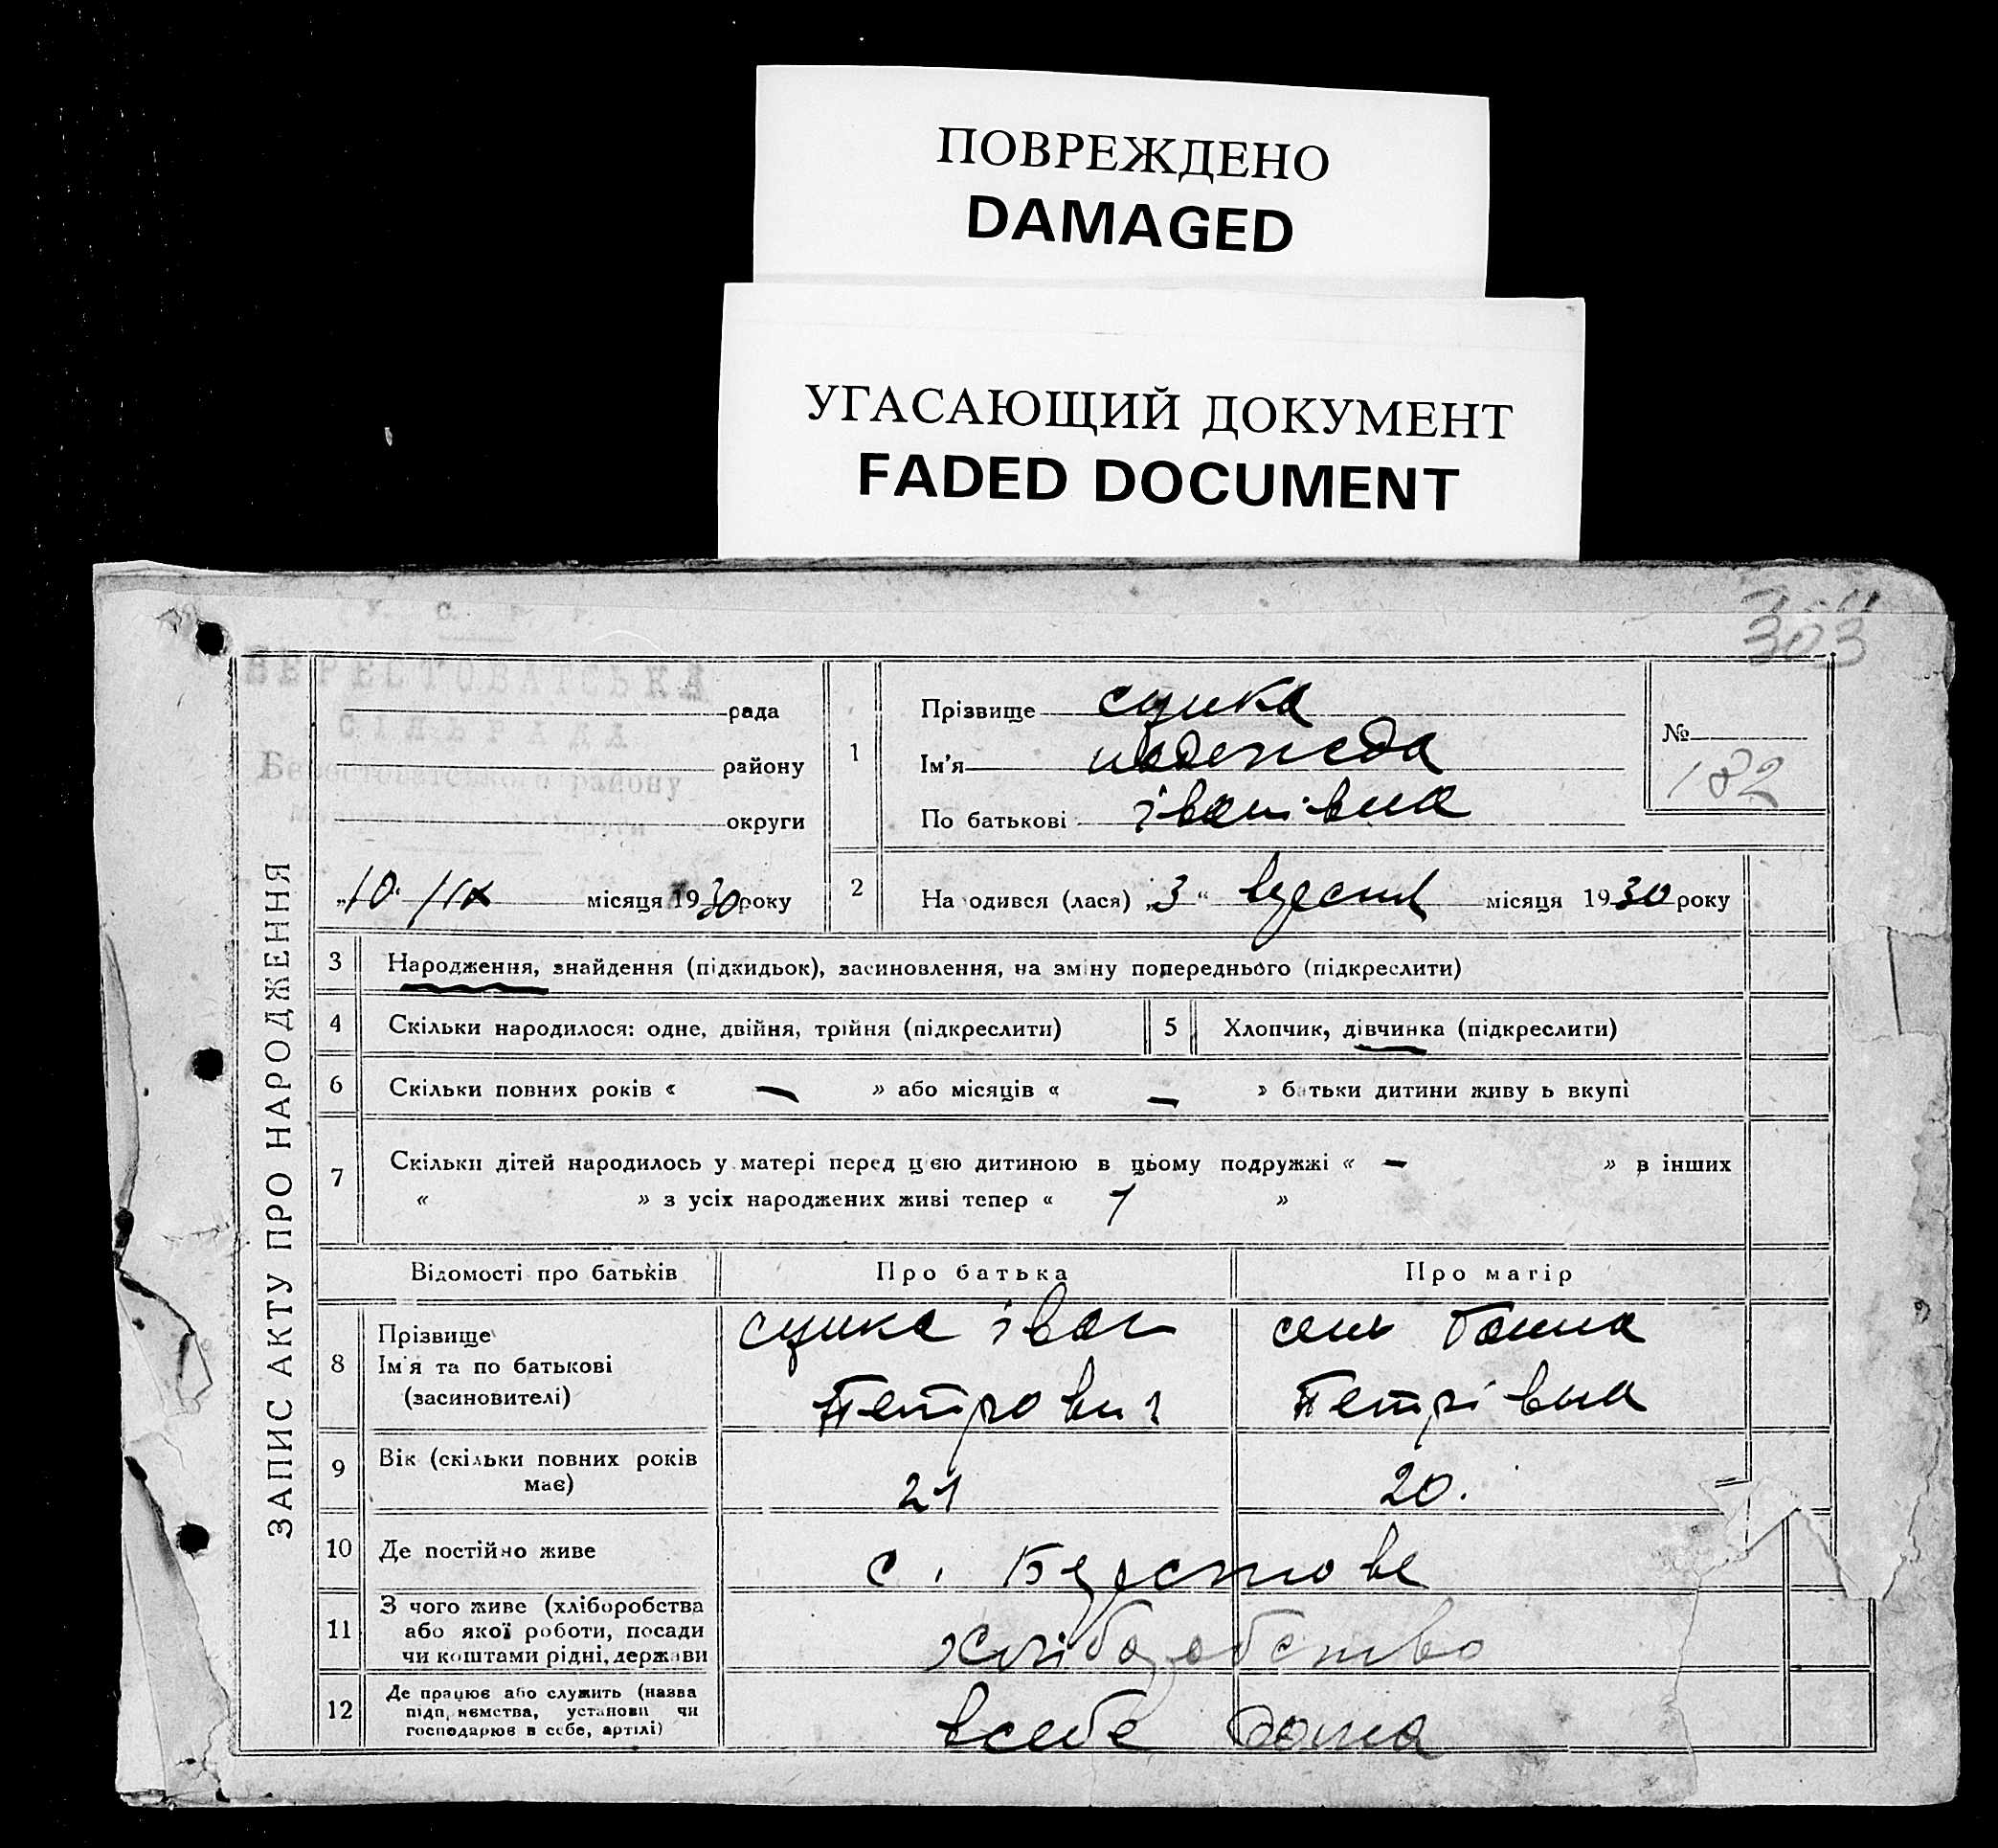 ПОВРЕЖДЕНО
DAMAGED
УГАСАЮЩИЙ ДОКУМЕНТ
FADED DOCUMENT
303
У. С. Р. Р.
БЕРЕСТОВАТСЬКА
СІЛЬРАДА
Берестоватського району
округи
рада
району
округи
„10" /IX місяця 1930 року
ЗАПИС АКТУ ПРО НАРОДЖЕННЯ
1 Прізвище сцика
Ім'я надежда
По батькові івонівна
№
182
2 На одився (лася) „3" вересня місяця 1930 року
3 Народження, знайдення (підкидьок), засиновлення, на зміну попереднього (підкреслити)
4 Скільки народилося: одне, двійня, трійня (підкреслити) 5 Хлопчик, дівчинка (підкреслити)
6 Скільки повних років « — » або місяців « — » батьки дитини живу ь вкупі
7 Скільки дітей народилось у матері перед цією дитиною в цьому подружжі « — » в інших
« » з усіх народжених живі тепер « 1 »
Відомості про батьків Про батька Про матір
8 Прізвище
Ім'я та по батькові
(засиновителі)
сцика іван
Петрович
Ганна
Петрівна
9 Вік (скільки повних років
має)
21 20.
10 Де постійно живе с. Берестове
11 З чого живе (хліборобства
або якої роботи, посади
чи коштами рідні, держави
хліборобство
12 Де працює або служить (назва
підп,иємства, установи чи
господарює в себе, артілі)
всебе дома